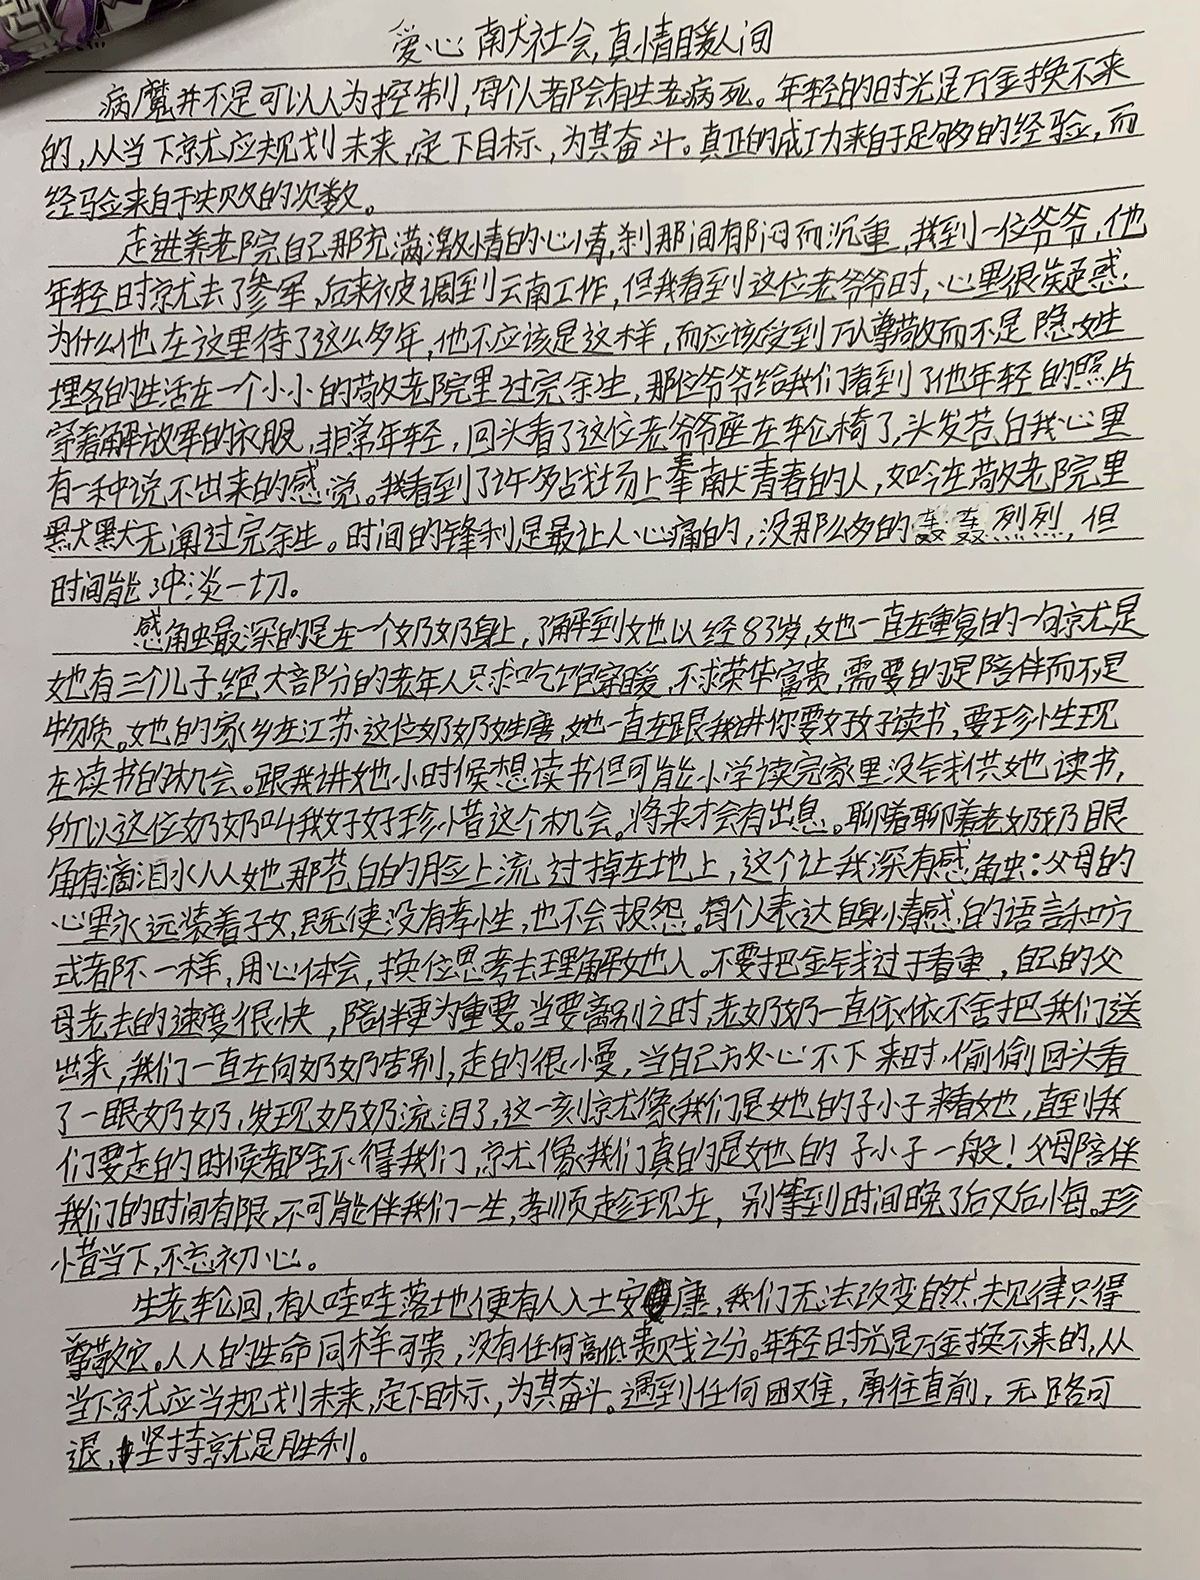 爱心献社会,真情暖人间
病魔并不是可以人为控制,每个人都会有生老病死。年轻的时光是万金换不来
的,从当下就应规划未来,定下目标,为其奋斗。真正的成功来自于足够的经验,而
经验来自于失败的次数。
走进养老院自己那充满激情的心情,刹那间郁闷而沉重,找到一位爷爷,他
年轻时就去了参军,后来被调到云南工作,但我看到这位老爷爷时,心里很疑惑:
为什么他在这里待了这么多年,他不应该是这样,而应该受到万人尊敬而不是隐姓
埋名的生活在一个小小的敬老院里过完余生,那位爷爷给我们看到了他年轻的照片
穿着解放军的衣服,非常年轻,回头看了这位老爷爷座在轮椅了,头发苍白我心里
有一种说不出来的感觉。我看到了许多战场上奉献青春的人,如今在敬老院里
默默无闻过完余生。时间的锋利是最让人心痛的,没那么多的轰轰烈烈,但
时间能冲淡一切。
感触最深的是在一个奶奶身上,了解到她以经83岁,她一直在重复的一句就是
她有三个儿子,绝大部分的老年人只求吃饱穿暖,不求荣华富贵,需要的是陪伴而不是
物质。她的家乡在江苏这位奶奶姓唐,她一直在跟我讲你要好孩子读书,要珍惜现
在读书的机会。跟我讲她小时候想读书但可能小学读完家里没钱供她读书,
所以这位奶奶叫我好好珍惜这个机会。将来才会有出息。聊着聊着老奶奶眼
角有滴泪水从她那苍白的脸上流过掉在地上,这个让我深有感触:父母的
心里永远装着子女,既使没有孝性,也不会报怨。每个人表达自身情感的语言和方
式都不一样,用心体会,换位思考去理解她人。不要把金钱过于看重,自己的父
母老去的速度很快,陪伴更为重要。当要离别之时,老奶奶一直依依不舍把我们送
出来,我们一直在向奶奶告别,走的很慢,当自己放心不下来时,偷偷回头看
了一眼奶奶,发现奶奶流泪了,这一刻就像我们是她的子小子来看她,直到我
们要走的时候都舍不得我们,就像我们真的是她的子小子一般!父母陪伴
我们的时间有限,不可能伴我们一生,孝顺趁现在,别等到时间晚了后又后悔。珍
惜当下,不忘初心。
生老轮回,有人哇哇落地便有人入土安康,我们无法改变自然规律只得
尊敬它。人人的生命同样可贵,没有任何高低贵贱之分。年轻时光是万金换不来的,从
当下就应当规划未来,定下目标,为其奋斗。遇到任何困难,勇往直前,无路可
退,坚持就是胜利。